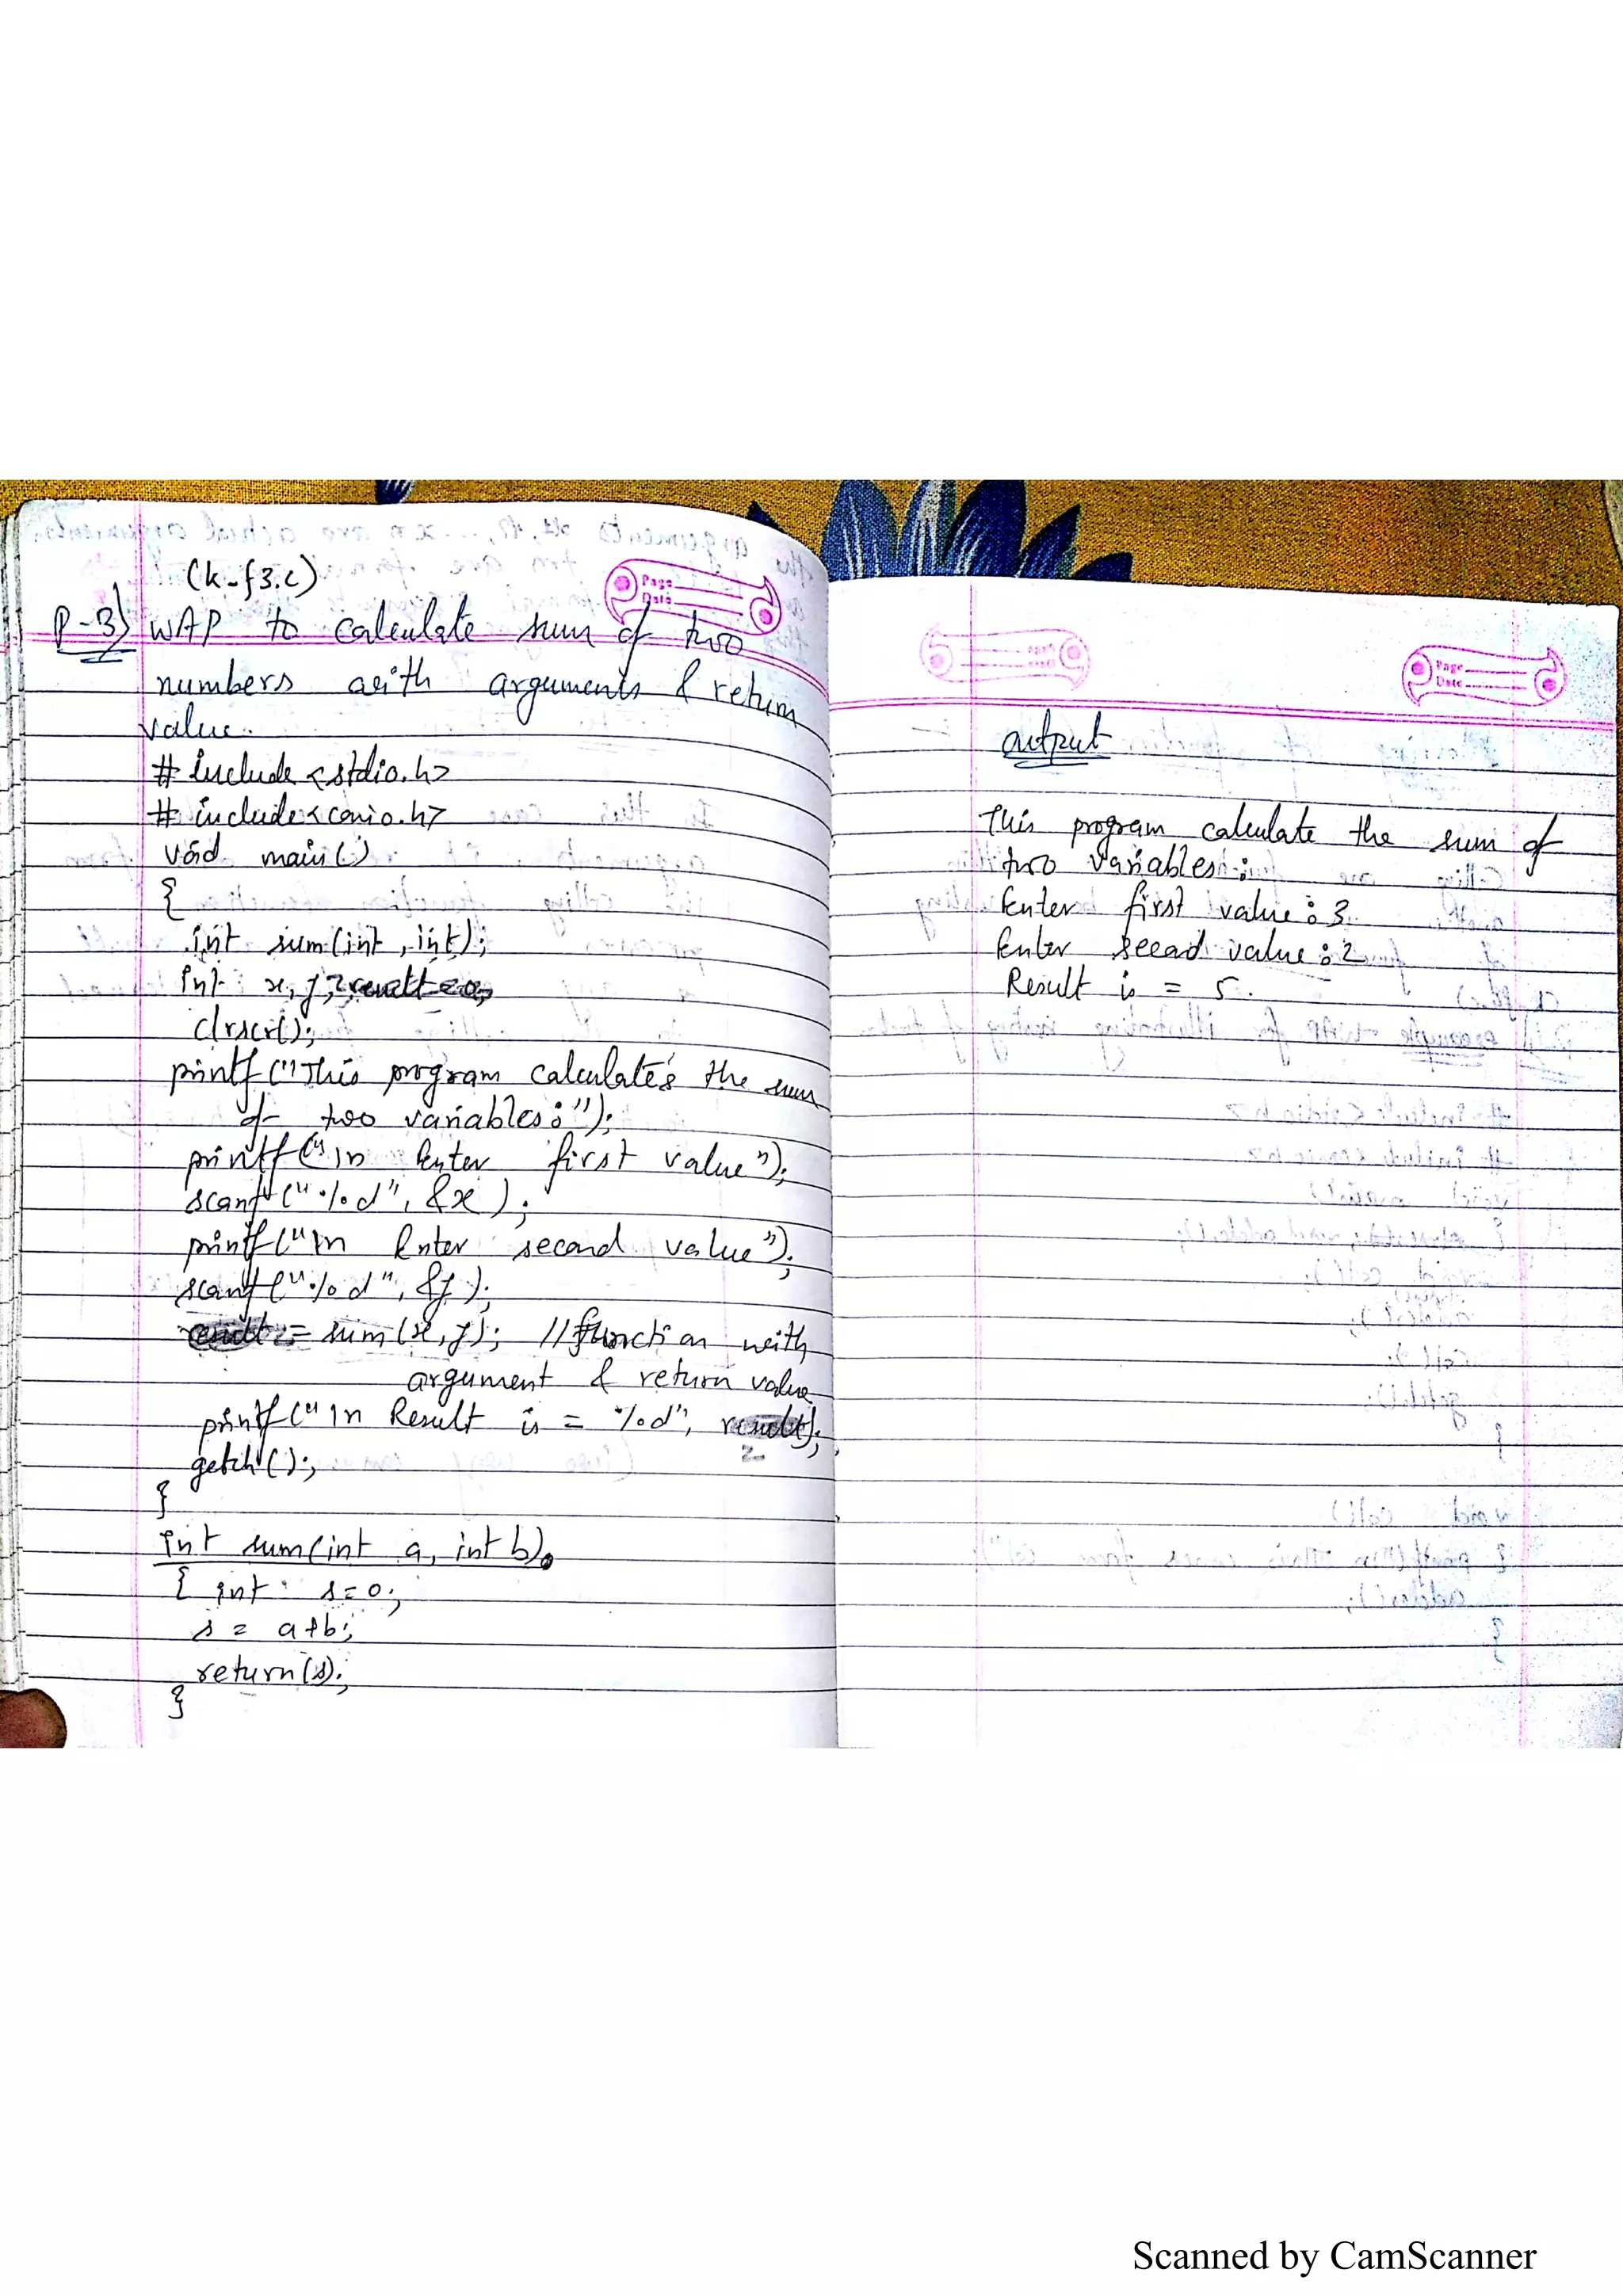 (k-f3.c)
P-3) WAP to calculate sum of two
numbers with arguments & return
value.
# include <stdio.h>
# include <conio.h>
void main()
{
int sum(int, int);
int x, y,
clrscr();
printf("This program calculates the sum
of two variables:");
printf("\n Enter first value");
scanf("%d", &x);
printf("\n Enter second value");
scanf("%d", &y);
= sum(x, y); //function with
argument & return value
printf("\n Result is = %d",
getch();
}
int sum(int a, int b)
{ int s=0;
s = a+b;
return(s);
}
Page
Date
output
This program calculate the sum of
two variables:
Enter first value: 3
Enter secod value: 2
Result is = 5.
Page
Date
Scanned by CamScanner